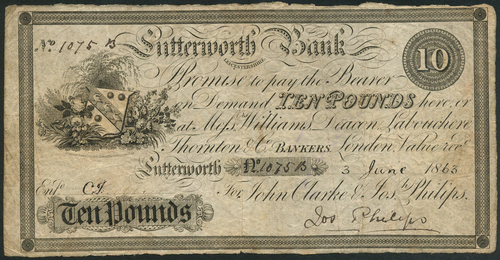 No. 1075 B Lutterworth Bank
LEICESTERSHIRE
10
I Promise to pay the Bearer
on Demand TEN POUNDS here, or
at Messrs Williams Deacon Labouchere
Thornton & Co. BANKERS. London, Value recd.
Lutterworth No. 1075 B 3 June 1863
Entd. CJ For John Clarke & Josh. Philips.
Ten Pounds
Jos Philips